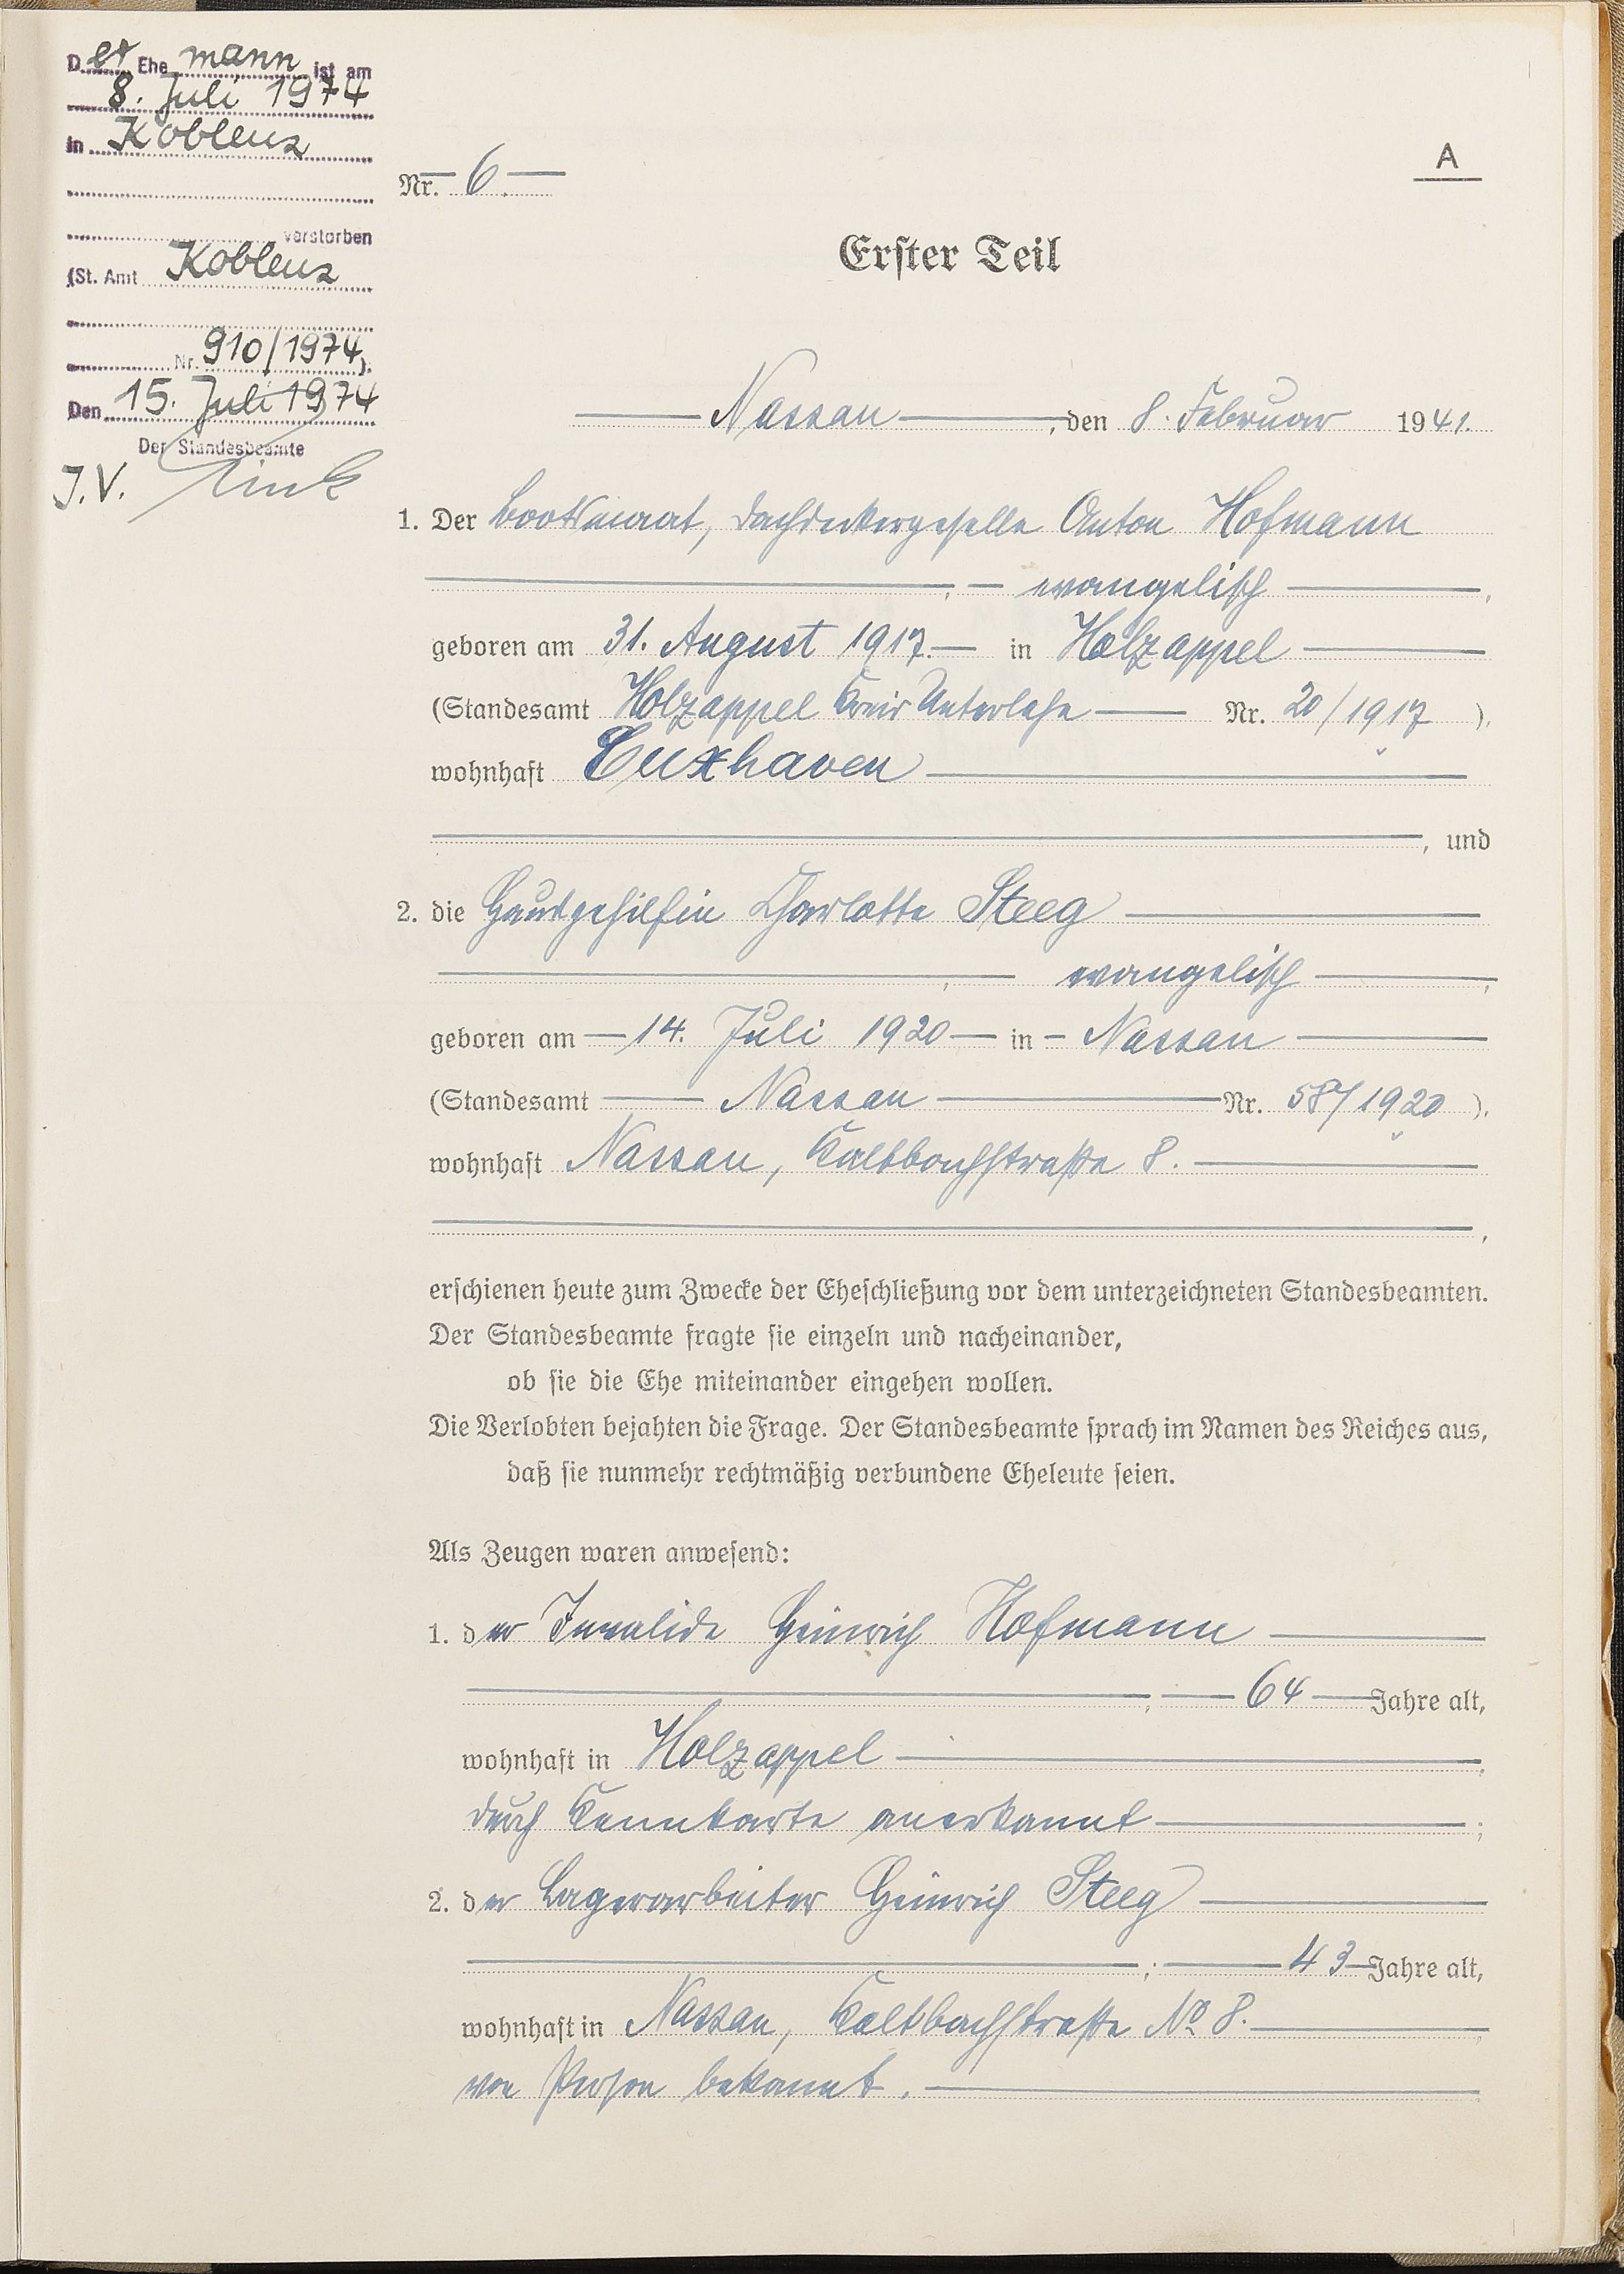 Der Ehemann ist am
8. Juli 1974
in Koblenz
verstorben
(St. Amt Koblenz
Nr. 910/1974).
Den 15. Juli 1974
Der Standesbeamte
J.V.
A
Nr. 6.
Erster Teil
Nassau, den 8. Februar 1941.
1. Der Bootsmaat, Dachdeckergeselle Anton Hofmann
evangelisch,
geboren am 31. August 1917. in Holzappel
(Standesamt Holzappel Kreis Unterlahn Nr. 20/1917 ),
wohnhaft Cuxhaven
, und
2. die Hausgehilfin Charlotte Steeg
evangelisch,
geboren am 14. Juli 1920 in Nassau
(Standesamt Nassau Nr. 58/1920 ),
wohnhaft Nassau, Kaltbachstraße 8.
erschienen heute zum Zwecke der Eheschließung vor dem unterzeichneten Standesbeamten.
Der Standesbeamte fragte sie einzeln und nacheinander,
ob sie die Ehe miteinander eingehen wollen.
Die Verlobten bejahten die Frage. Der Standesbeamte sprach im Namen des Reiches aus,
daß sie nunmehr rechtmäßig verbundene Eheleute seien.
Als Zeugen waren anwesend:
1. der Invalide Heinrich Hofmann
64 Jahre alt,
wohnhaft in Holzappel
durch Kennkarte anerkannt;
2. der Lagerarbeiter Heinrich Steeg
; 43 Jahre alt,
wohnhaft in Nassau, Kaltbachstraße No 8.
von Person bekannt.